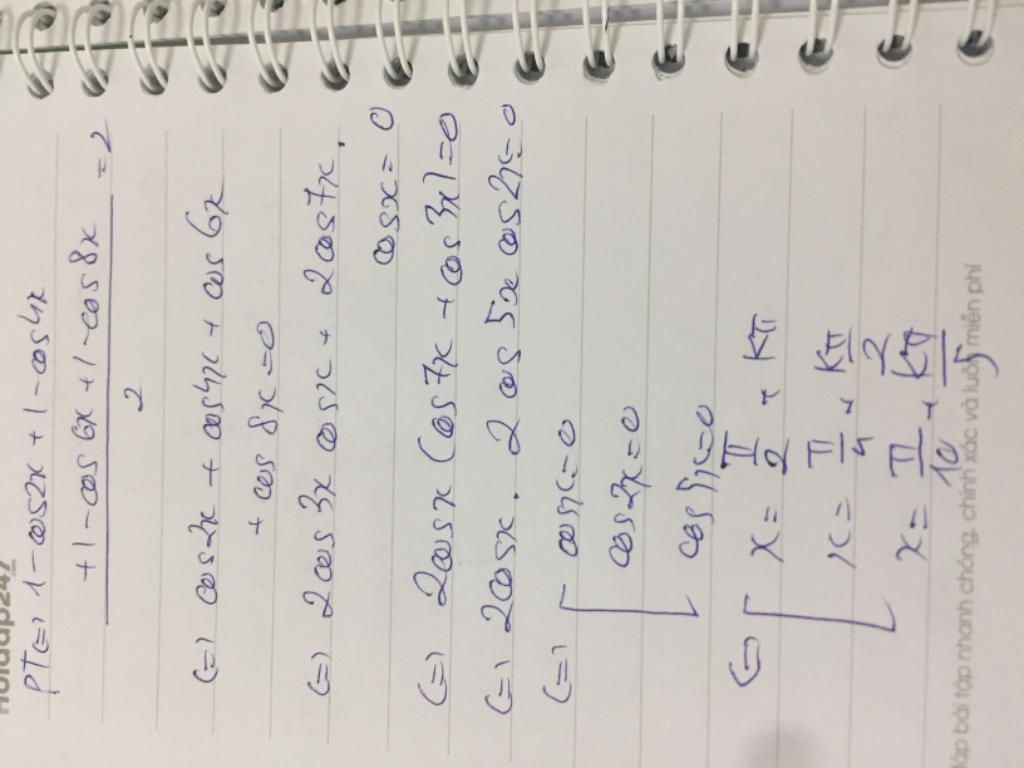 Hoidap247
PT (=) 1 - cos2x + 1 - cos4x
+ 1 - cos 6x + 1 - cos 8x = 2
2
(=) cos2x + cos4x + cos 6x
+ cos 8x = 0
(=) 2cos 3x cosx + 2cos7x.
cosx = 0
(=) 2cosx (cos 7x + cos 3x) = 0
(=) 2cosx. 2 cos 5x cos2x = 0
(=) [ cosx = 0
cos2x = 0
cos5x = 0
(=) [ x = π/2 + kπ
x = π/4 + kπ/2
x = π/10 + kπ/5
đáp bài tập nhanh chóng, chính xác và luôn miễn phí